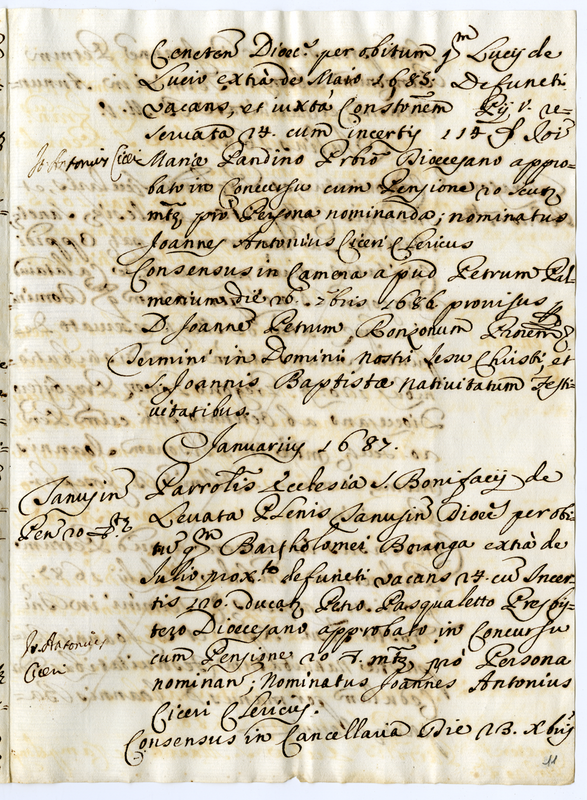 Ceneten Dioec. per obitum qm Lucij de
Lucio extra de Maio 1685. Defuncti
vacans, et iuxta Constonem Pij V. re-
servata 24. cum incertis 114 Jois
Jo: Antonius Ciceri
Mariæ Pandino Prbro Dioecesano appro-
bato in Concursu cum Pensione 20 scut
mtæ pro Persona nominanda; nominatus
Joannes Antonius Ciceri Clericus
Consensus in Camera apud Petrum Pal-
merium die 26. 7bris 1686 provisus
D. Joannes Petrum Bonzonum Proem
Termini in Domini nostri Jesu Christi, et
S. Joannis Baptistæ nativitatum festi-
vitatibus.
Januarius 1687.
Tarvisin
Pen 20
Parrolis Ecclesia S. Bonifacij de
Levata Plenis Tarvisin Dioec. per obi-
tu qm Bartholomei Boranga extra de
Julio prox.to defuncti vacans 24. cu Incer-
tis 120. ducat Petro Pasqualetto Presby-
tero Dioecesano approbato in Concursu
Jo: Antonius
Ciceri
cum Pensione 20 mtæ, pro Persona
nominan; Nominatus Joannes Antonius
Ciceri Clericus.
Consensus in Cancellaria Die 23. Xbris
11